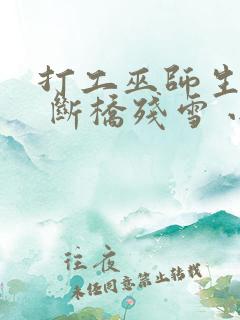 打工巫師生
斷橋殘雪
往夜
未經同意禁止轉載